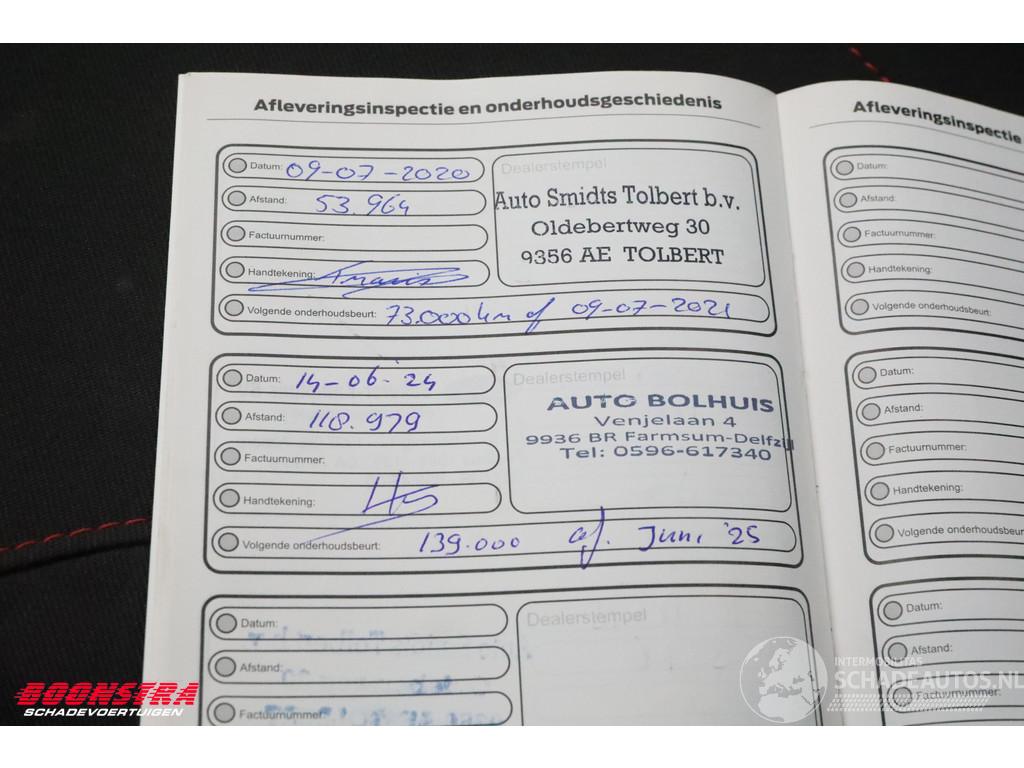 Afleveringsinspectie en onderhoudsgeschiedenis
Datum: 09-07-2020
Afstand: 53.964
Factuurnummer:
Handtekening:
Volgende onderhoudsbeurt: 73.000 km of 09-07-2021
Dealerstempel
Auto Smidts Tolbert b.v.
Oldebertweg 30
9356 AE TOLBERT
Datum: 14-06-24
Afstand: 118.979
Factuurnummer:
Handtekening:
Volgende onderhoudsbeurt: 139.000 of. Juni '25
Dealerstempel
AUTO BOLHUIS
Venjelaan 4
9936 BR Farmsum-Delfzijl
Tel: 0596-617340
Datum:
Afstand:
Factuurnummer:
Dealerstempel
Afleveringsinspectie
Datum:
Afstand:
Factuurnummer:
Handtekening:
Volgende onderhoudsbeurt:
Datum:
Afstand:
Factuurnummer:
Handtekening:
Volgende onderhoudsbeurt
Datum:
Afstand:
Factuurnummer:
BOONSTRA
SCHADEVOERTUIGEN
INTERMOBILITAS
SCHADEAUTOS.NL